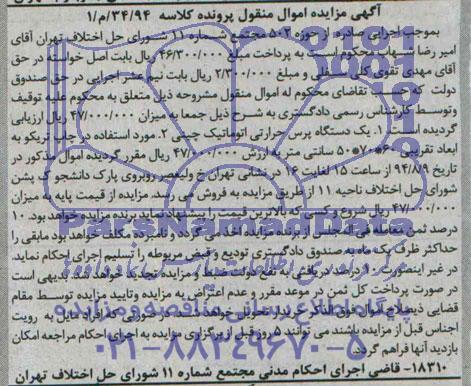 آگهی مزایده اموال منقول پرونده کلاسه ۳۴/۹۴/م/۱
بموجب اجرایی صادره از حوزه ۵۰۲ مجتمع شماره ۱۱ شورای حل اختلاف تهران آقای
امیر رضا شهاب محکوم است به پرداخت مبلغ ۴۶/۳۰۰/۰۰۰ ریال بابت اصل خواسته در حق
آقای مهدی تقوی کلی سفلی و مبلغ ۲/۳۰۰/۰۰۰ ریال بابت نیم عشر اجرایی در حق صندوق
دولت که حسب تقاضای محکوم له اموال منقول مشروحه ذیل متعلق به محکوم علیه توقیف
وتوسط کارشناس رسمی دادگستری به شرح ذیل جمعا به میزان ۴۷/۰۰۰/۰۰۰ ریال ارزیابی
گردیده است. ۱. یک دستگاه پرس حرارتی اتوماتیک جیفی ۲. مورد استفاده در چاپ تریکو به
ابعاد تقریبی ۶۰*۷۰*۵۰ سانتی متر به ارزش ۴۷/۰۰۰/۰۰۰ ریال مقرر گردیده اموال مذکور در
تاریخ ۹۴/۸/۹ از ساعت ۱۵ لغایت ۱۶ در نشانی تهران خ ولیعصر روبروی پارک دانشجو ک پشن
شورای حل اختلاف ناحیه ۱۱ از طریق مزایده به فروش می رسد. مزایده از قیمت پایه به میزان
۴۷/۰۰۰/۰۰۰ ریال شروع و کسی که بالاترین قیمت را پیشنهاد نماید برنده مزایده خواهد بود. ۱۰
درصد ثمن معامله فی المجلس از برنده مزایده اخذ می گردد و نامبرده مکلف خواهد بود مابقی را
حداکثر ظرف یک ماه به صندوق دادگستری تودیع و قبض مربوطه را تسلیم اجرای احکام نماید.
در غیر اینصورت ۱۰ درصد دریافتی به نفع دولت ضبط و مزایده تجدید خواهد شد. بدیهی است
در صورت پرداخت کل ثمن در موعد مقرر و عدم اعتراض به مزایده و تایید مزایده توسط مقام
قضایی ذیصلاح اموال فوق الذکر به خریدار تحویل خواهد شد. افراد مایل به رویت
اجناس قبل از مزایده باشند می توانند ۵ روز قبل از برگزاری مزایده به اجرای احکام مراجعه امکان
بازدید آنها فراهم گردد.
۱۸۳۱۰- قاضی اجرای احکام مدنی مجتمع شماره ۱۱ شورای حل اختلاف تهران
ParsNamadData
پایگاه اطلاع رسانی مناقصه و مزایده
۰۲۱-۸۸۳۴۹۶۷۰-۵